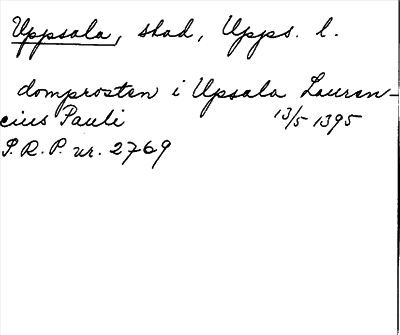 Uppsala, stad, Upps. l.
domprosten i Upsala Lauren-
cius Pauli 13/5 1395
S.R.P. nr. 2769